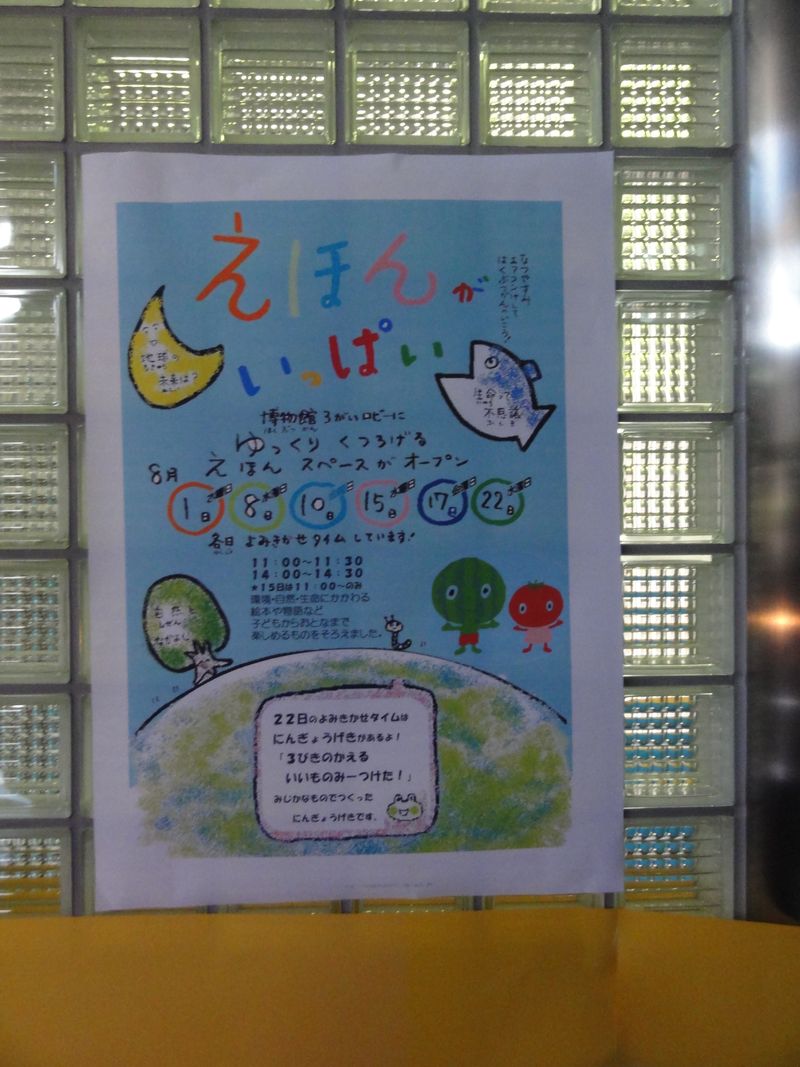 えほんが
いっぱい
なつやすみ
エアコンけして
はくぶつかんへいこう!
地球の
未来は?
生命って
不思議
博物館 3がいロビーに
はくぶつかん
ゆっくり くつろげる
8月 えほん スペースが オープン
1日 8日 10日 15日 17日 22日
各日 よみきかせタイム しています!
11:00～11:30
14:00～14:30
*15日は11:00～のみ
環境・自然・生命にかかわる
絵本や物語など
子どもからおとなまで
楽しめるものをそろえました。
自然と
しぜん
なかよし
22日のよみきかせタイムは
にんぎょうげきがあるよ!
「3びきのかえる
いいものみーつけた!」
みじかなものでつくった
にんぎょうげきです。